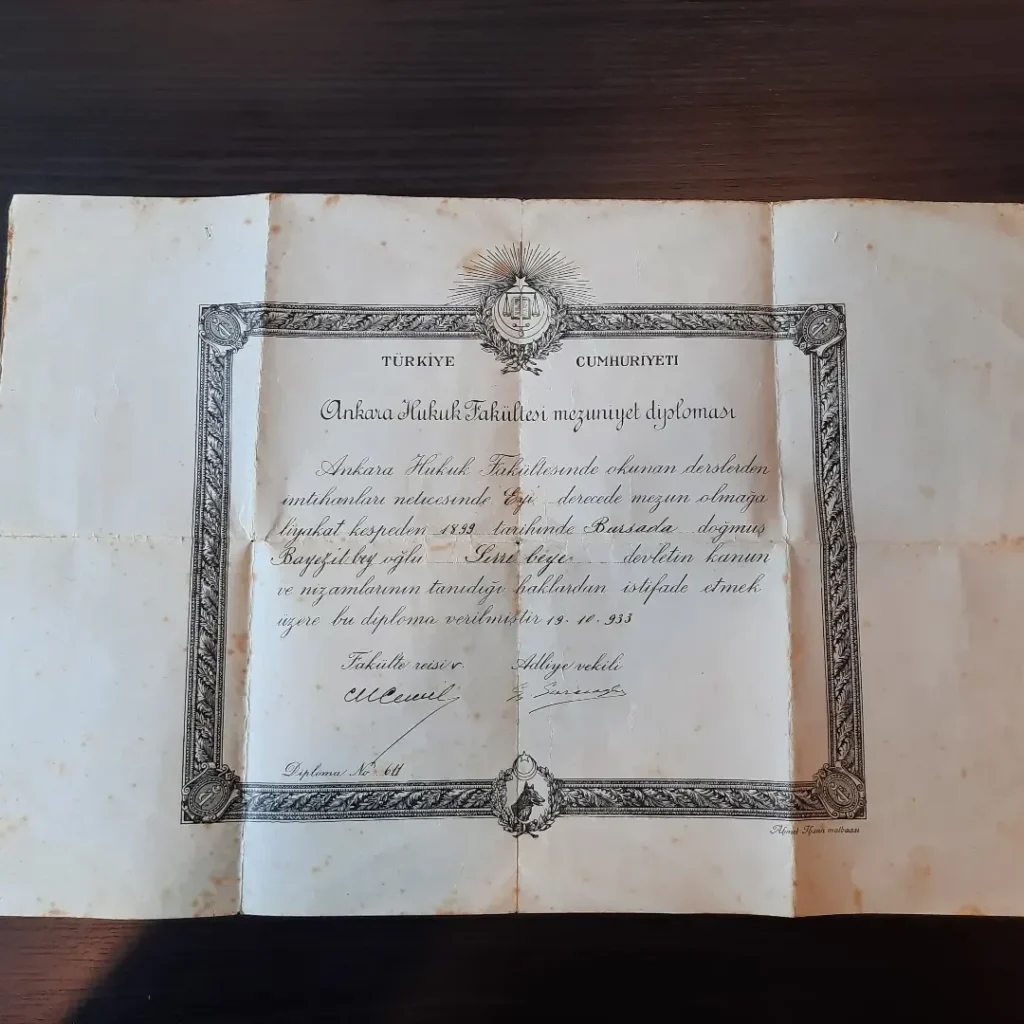 TÜRKİYE CUMHURIYETI
Ankara Hukuk Fakültesi mezuniyet diploması
Ankara Hukuk Fakültesinde okunan derslerden
imtihanları neticesinde Eyi derecede mezun olmağa
liyakat kespeden 1899 tarihinde Bursada doğmuş
Bayezit bey oğlu Sırrı beye devletin kanun
ve nizamlarının tanıdığı haklardan istifade etmek
üzere bu diploma verilmiştir 19. 10. 933
Fakülte reisi v. Adliye vekili
Diploma No 611
Ahmet İhsan matbaası